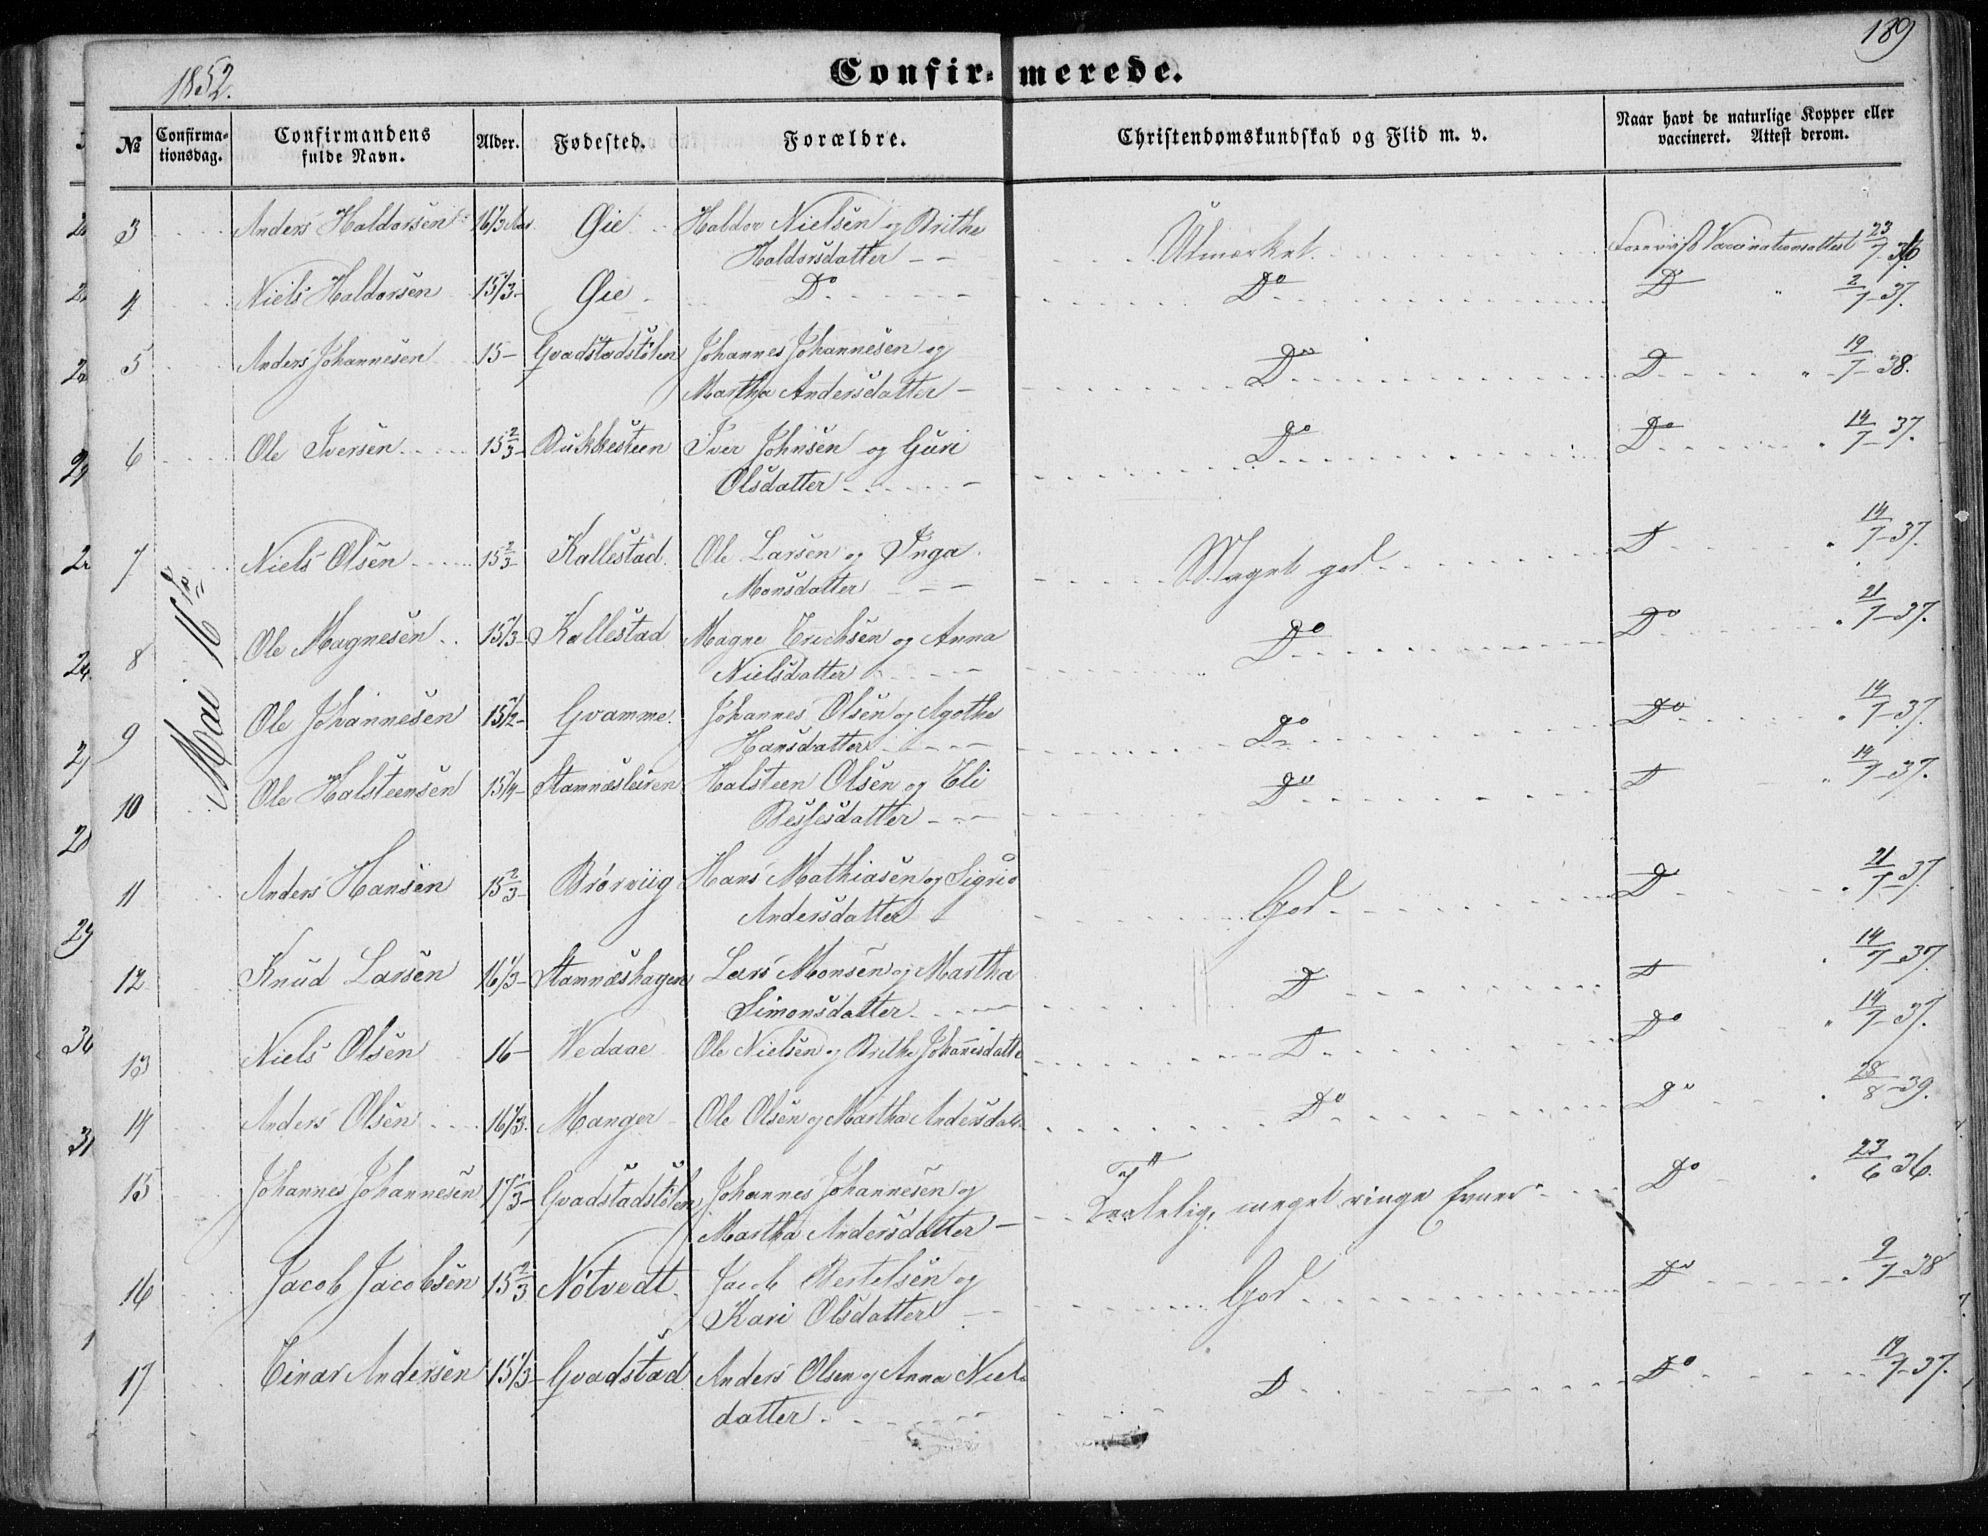 189
1852.
Confirmerede.
№ Confirmationsdag. Confirmandens fulde Navn. Alder. Fødested. Forældre. Christendomskundskab og Flid m. v. Naar havt de naturlige Kopper eller vaccineret. Attest derom.
Mai 16de
3 Anders Haldorsen 16 1/3 Aar Øie Haldor Nielsen og Brithe Udmærket Vaccinationsattest 23/7 36
Haldorsdatter
4 Niels Haldorsen 15 1/3 Øie Do Do Do 2/7 37.
5 Anders Johannesen 15 Gvadstadstølen Johannes Johannesen og Do Do 19/7 38.
Martha Andersdatter
6 Ole Iversen 15 2/3 Bukkesteen Iver Johnsen og Guri Do Do 14/7 37.
Olsdatter
7 Niels Olsen 15 2/3 Kallestad Ole Larsen og Inga Meget god Do 14/7 37.
Monsdatter
8 Ole Magnesen 15 1/3 Kallestad Magne Erichsen og Anna Do Do 21/7 37.
Nielsdatter
9 Ole Johannesen 15 1/2 Gvamme Johannes Olsen og Agothe Do Do 14/7 37.
Hansdatter
10 Ole Halsteensen 15 1/4 Stamnæsleiren Halsteen Olsen og Eli Do Do 14/7 37.
Bessesdatter
11 Anders Hansen 15 2/3 Brørviig Hans Mathiasen og Sigrid God Do 21/7 37.
Andersdatter
12 Knud Larsen 16 1/3 Stamnæshagen Lars Monsen og Martha Do Do 14/7 37.
Simonsdatter
13 Niels Olsen 16 Hedaae Ole Nielsen og Brithe Johannesdatter Do Do 14/7 37.
14 Anders Olsen 16 1/3 Manger Ole Olsen og Martha Andersdatt. Do Do 28/8 39.
15 Johannes Johannesen 17 2/3 Gvadstadstølen Johannes Johannesen og Taalelig, meget ringe Evner Do 23/6 36.
Martha Andersdatter
16 Jacob Jacobsen 15 2/3 Nøtvedt Jacob Bertelsen og God Do 9/7 38
Kari Olsdatter
17 Einar Andersen 15 1/3 Gvadstad Anders Olsen og Anna Niels Do Do 19/7 37.
datter